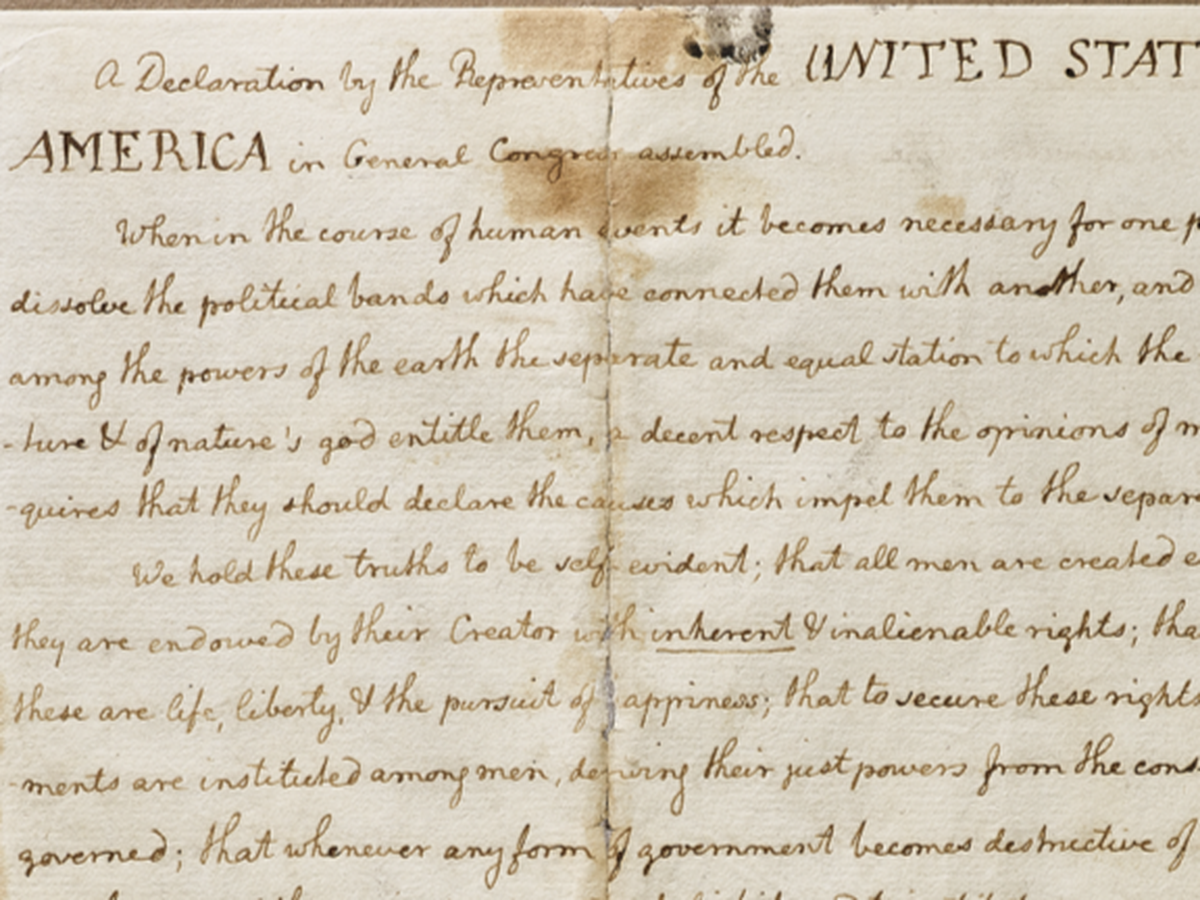 A Declaration by the Representatives of the UNITED STAT
AMERICA in General Congress assembled.
When in the course of human events it becomes necessary for one p
dissolve the political bands which have connected them with another, and
among the powers of the earth the separate and equal station to which the
-ture & of nature's god entitle them, a decent respect to the opinions of m
-quires that they should declare the causes which impel them to the separa
We hold these truths to be self-evident; that all men are created e
they are endowed by their Creator with inherent & inalienable rights; tha
these are life, liberty, & the pursuit of happiness; that to secure these rights
-ments are instituted among men, deriving their just powers from the cons
governed; that whenever any form of government becomes destructive of